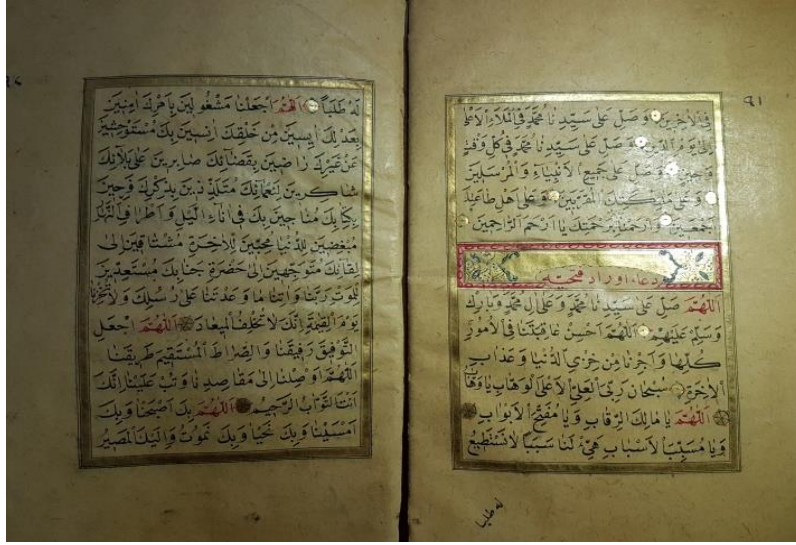 ٩١
فِى الْاٰخِرِينَ وَصَلِّ عَلٰى سَيِّدِنَا مُحَمَّدٍ فِى الْمَلَاِ الْاَعْلٰى
اِلٰى يَوْمِ الدِّينِ وَصَلِّ عَلٰى سَيِّدِنَا مُحَمَّدٍ فِى كُلِّ وَقْتٍ
وَحِينٍ وَصَلِّ عَلٰى جَمِيعِ الْاَنْبِيَاءِ وَالْمُرْسَلِينَ
وَعَلٰى مَلٰئِكَتِكَ الْمُقَرَّبِينَ وَعَلٰى اَهْلِ طَاعَتِكَ
اَجْمَعِينَ وَارْحَمْنَا بِرَحْمَتِكَ يَا اَرْحَمَ الرَّاحِمِينَ
دعاء اوراد فتحيه
اَللّٰهُمَّ صَلِّ عَلٰى سَيِّدِنَا مُحَمَّدٍ وَعَلٰى اٰلِ مُحَمَّدٍ وَبَارِكْ
وَسَلِّمْ عَلَيْهِمْ اَللّٰهُمَّ اَحْسِنْ عَاقِبَتَنَا فِى الْاُمُورِ
كُلِّهَا وَاَجِرْنَا مِنْ خِزْىِ الدُّنْيَا وَعَذَابِ
الْاٰخِرَةِ سُبْحَانَ رَبِّىَ الْعَلِىِّ الْاَعْلَى الْوَهَّابِ يَا وَهَّابُ
اَللّٰهُمَّ يَا مَالِكَ الرِّقَابِ وَيَا مُفَتِّحَ الْاَبْوَابِ
وَيَا مُسَبِّبَ الْاَسْبَابِ هَيِّئْ لَنَا سَبَبًا لَا نَسْتَطِيعُ
له طلبا
لَهُ طَلَبًا اَللّٰهُمَّ اجْعَلْنَا مَشْغُولِينَ بِاَمْرِكَ اٰمِنِينَ
بِعَدْلِكَ اٰيِسِينَ مِنْ خَلْقِكَ اٰنِسِينَ بِكَ مُسْتَوْحِشِينَ
عَنْ غَيْرِكَ رَاضِينَ بِقَضَائِكَ صَابِرِينَ عَلٰى بَلَائِكَ
شَاكِرِينَ لِنَعْمَائِكَ مُتَلَذِّذِينَ بِذِكْرِكَ فَرِحِينَ
بِكِتَابِكَ مُنَاجِينَ بِكَ فِى اٰنَاءِ الَّيْلِ وَاَطْرَافِ النَّهَارِ
مُبْغِضِينَ لِلدُّنْيَا مُحِبِّينَ لِلْاٰخِرَةِ مُشْتَاقِينَ اِلٰى
لِقَائِكَ مُتَوَجِّهِينَ اِلٰى حَضْرَةِ جَنَابِكَ مُسْتَعِدِّينَ
لِلْمَوْتِ رَبَّنَا وَاٰتِنَا مَا وَعَدْتَنَا عَلٰى رُسُلِكَ وَلَا تُخْزِنَا
يَوْمَ الْقِيٰمَةِ اِنَّكَ لَا تُخْلِفُ الْمِيعَادَ اَللّٰهُمَّ اجْعَلِ
التَّوْفِيقَ رَفِيقَنَا وَالصِّرَاطَ الْمُسْتَقِيمَ طَرِيقَنَا
اَللّٰهُمَّ اَوْصِلْنَا اِلٰى مَقَاصِدِنَا وَتُبْ عَلَيْنَا اِنَّكَ
اَنْتَ التَّوَّابُ الرَّحِيمُ اَللّٰهُمَّ بِكَ اَصْبَحْنَا وَبِكَ
اَمْسَيْنَا وَبِكَ نَحْيَا وَبِكَ نَمُوتُ وَاِلَيْكَ الْمَصِيرُ